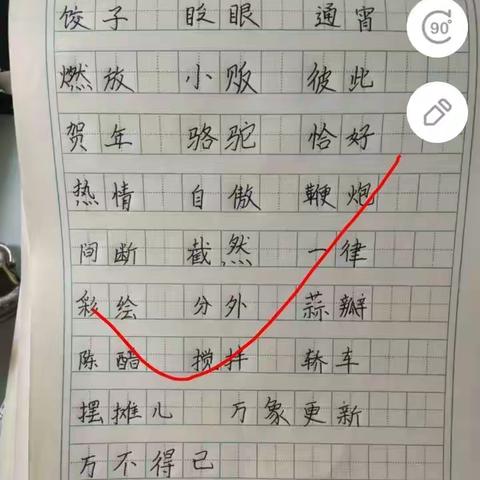 饺子 眨眼 通宵
燃放 小贩 彼此
贺年 骆驼 恰好
热情 自傲 鞭炮
间断 截然 一律
彩绘 分外 蒜瓣
陈醋 搅拌 轿车
摆摊儿 万象更新
万不得已
90°